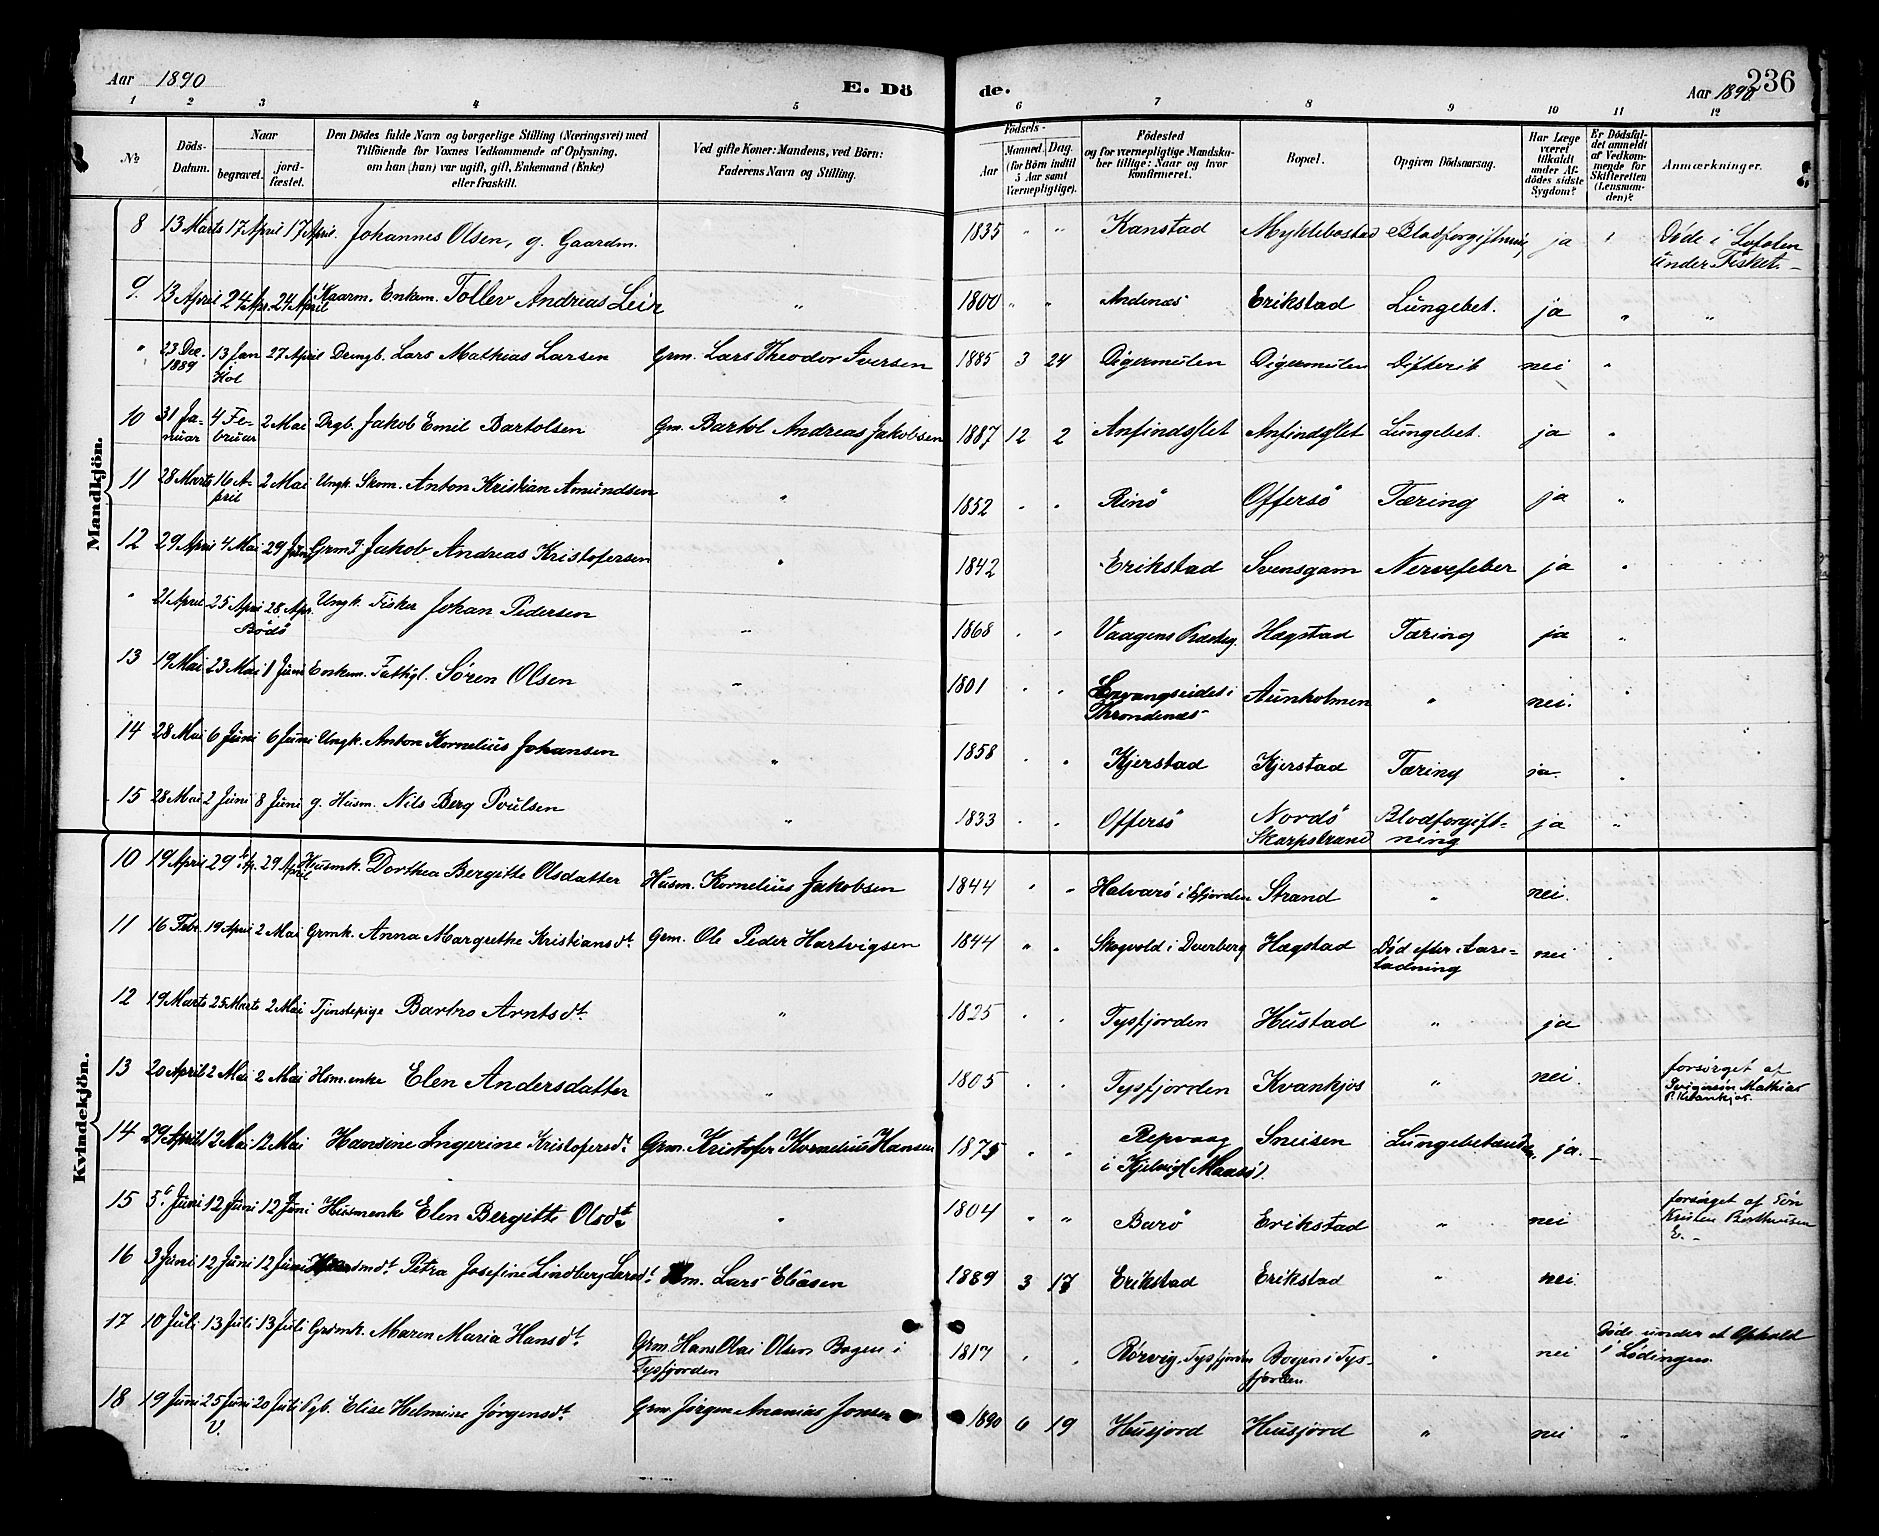 Aar 1890
E. Dö
de.
Aar 1890
236
1 2 3 4 5 6 7 8 9 10 11 12
№
Döds-Datum.
Naar
begravet.
jord-fæstet.
Den Dödes fulde Navn og borgerlige Stilling (Næringsvei) med
Tilföiende for Voxnes Vedkommende af Oplysning,
om han (hun) var ugift, gift, Enkemand (Enke)
eller fraskilt.
Ved gifte Koner: Mandens, ved Börn:
Faderens Navn og Stilling.
Födsels-
Aar
Maaned. Dag.
(for Börn indtil 5 Aar samt Værnepligtige).
Födested
og for værnepligtige Mandska-
ber tillige: Naar og hvor
konfirmeret.
Bopæl.
Opgiven Dödsaarsag.
Har Læge været tilkaldt under Af-dödes sidste Sygdom?
Er Dödsfal-det anmeldt af Vedkom-mende for Skifteretten (Lensman-den)?
Anmærkninger.
Mandkjön.
8 13 Marts 17 April 17 April. Johannes Olsen, g. Gaardm. 1835 " " Kanstad Myklebostad Blodforgiftning ja " Døde i Lofoten under Fisket.-
9. 13 April 24 Apr. 24 April Kaarm. Enkem. Tollev Andreas Leir " 1800 " " Andenæs Erikstad Lungebet. ja " "
" 23 Dec. 1889 13 Jan Hol 27 April Drengb. Lars Mathias Larsen Grm. Lars Theodor Iversen 1885 3 24 Digermulen Digermulen Difterit nei "
10 31 Ja-nuar 4 Fe-bruar 2 Mai Drgb. Jakob Emil Bartolsen Gm. Bartol Andreas Jakobsen 1887 12 2 Anfindslet Anfindslet Lungebet. ja "
11 28 Marts 16 A-pril 2 Mai Ungk. Skom. Anton Kristian Amundsen " 1852 " " Rinö Offersö Tæring ja "
12 29 April 4 Mai 29 Juni Grm. Jakob Andreas Kristofersen " 1842 Erikstad Svensgam Nervefeber ja "
" 21 April 25 April Bödö 28 Apr. Ungk. Fisker Johan Pedersen " 1868 " " Vaagens Præsteg. Hegstad Tæring ja "
13 19 Mai 23 Mai 1 Juni Enkem. Fattigl. Sören Olsen " 1801 " " i Throndenæs Aunholmen " nei. "
14 28 Mai 6 Juni 6 Juni Ungk. Anton Kornelius Johansen " 1858 " " Kjerstad Kjerstad Tæring ja. "
15 28 Mai 2 Juni 8 Juni g. Husm. Nils Berg Poulsen " 1833 " " Offersö Nordö Skarpstrand Blodforgift-ning ja "
Kvindekjön.
10 19 April 29 Ap. 29 April Husmk. Dorthea Bergitte Olsdatter Husm. Kornelius Jakobsen 1844 " " Halvarö i Efjorden Strand " nei.
11 16 Febr. 19 April 2 Mai Grmk. Anna Margrethe Kristiansdt. Grm. Ole Peder Hartvigsen 1844 " " Skogvold i Dverberg Hegstad Död efter Aare-ladning nei "
12 19 Marts 25 Marts 2 Mai Tjenstepige Barbro Arntsdt. " 1825 " " Tysfjorden Hustad " ja
13 20 April 2 Mai 2 Mai Hsm.enke Elen Andersdatter " 1805 " " Tysfjorden Kvankjos " nei. forsörget af Svigersön Mathias P. Kvankjos.
14 29 April 12 Mai 12 Mai Hansine Ingerine Kristofersdt. Grm. Kristofer Kornelius Hansen 1875 " " Repvaag i Kjelvig (Maasö). Sneisen Lungebetændelse ja. -
15 5t. Juni 12 Juni 12 Juni Husmenke Elen Bergitte Olsdt. " 1804 " " Barö Erikstad " nei forsörget af Sön Kristen Berthinsen E.-
16 3 Juni 12 Juni 12 Juni Petra Josefine Lindberg Larsdt. Hm. Lars Eliasen 1889 3 17 Erikstad Erikstad " nei.
17 10 Juli 13 Juli 13 Juli Grdmk. Maren Maria Hansdt. Grm. Hans Olai Olsen Bogen i Tysfjorden 1817 " " Rörvig, Tysfjorden Bogen i Tys-fjorden " nei Döde under et Ophold i Lödingen
18 19 Juni 25 Juni 20 Juli Pgb. Elise Helmine Jörgensdt. Grm. Jörgen Ananias Jonsen 1890 6 19 Husjord Husjord " nei "